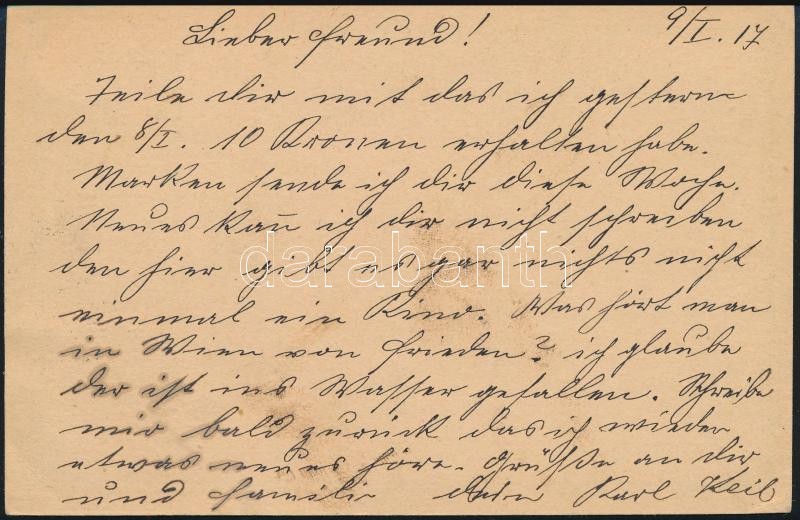 Lieber Freund! 9/I. 17
Teile dir mit das ich gestern
den 8/I. 10 Kronen erhalten habe.
Marken sende ich dir diese Woche.
Neues kan̄ ich dir nicht schreiben
den hier gibt es gar nichts nicht
einmal ein Kino. Was hört man
in Wien von Frieden? ich glaube
der ist ins Wasser gefallen. Schreibe
mir bald zurück das ich wieder
etwas neues höre. Grüße an dir
und Familie dein Karl Keil
darabanth